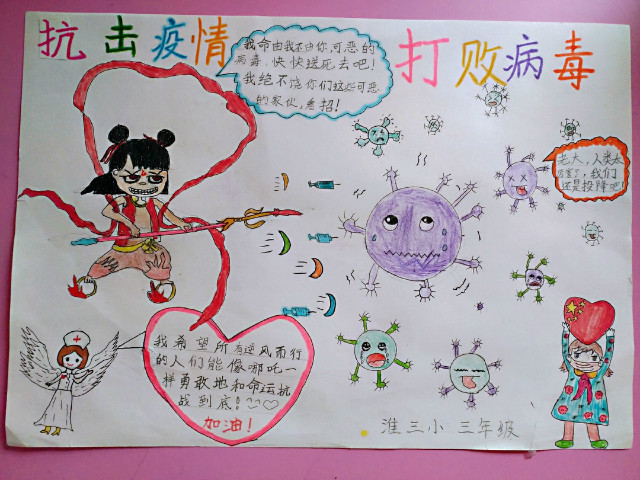 抗击疫情
打败病毒
我命由我不由你,可恶的
病毒,快快送死去吧!
我绝不饶你们这些可恶
的家伙,看招!
老大,人类太
厉害了,我们
还是投降吧!
我希望所有逆风而行
的人们能像哪吒一
样勇敢地和命运抗
战到底!
加油!
淮三小 三年级